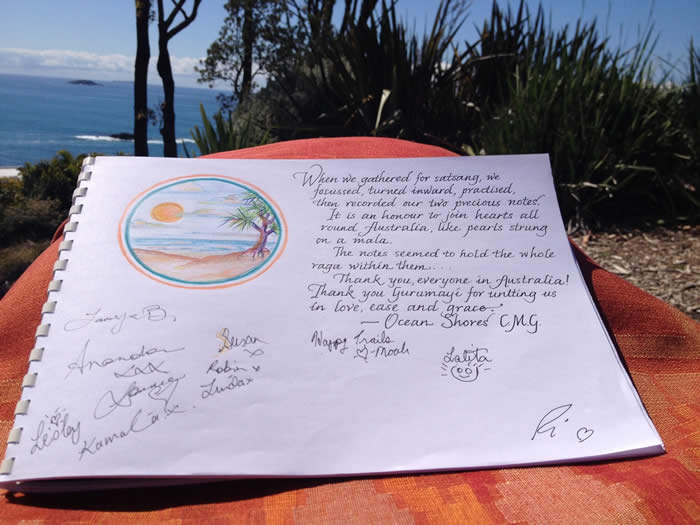 When we gathered for satsang, we
focussed, turned inward, practised,
then recorded our two precious notes!
It is an honour to join hearts all
round Australia, like pearls strung
on a mala.
The notes seemed to hold the whole
raga within them....
Thank you, everyone in Australia!
Thank you Gurumayi for uniting us
in love, ease and grace.
— Ocean Shores C.M.G.
Susan
Happy Trails
Lalita
Robin x
-Mook
Anandan
xxx
Linda x
Lesley
Kamala x